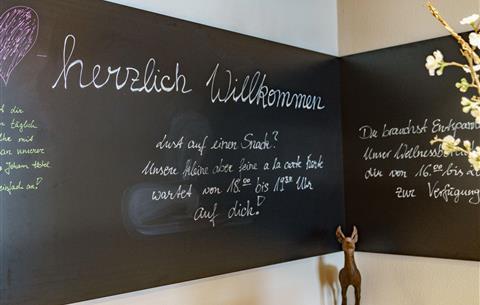 - herzlich Willkommen
Lust auf einen Snack?
Unsere kleine aber feine a la carte Karte
wartet von 18.00 bis 19.30 Uhr
auf dich!
st dir
täglich
mit
an unserer
Johann Hotel
einfach an?
Du brauchst Entspann
Unser Wellnessbere
dir von 16.00 bis 2
zur Verfügung